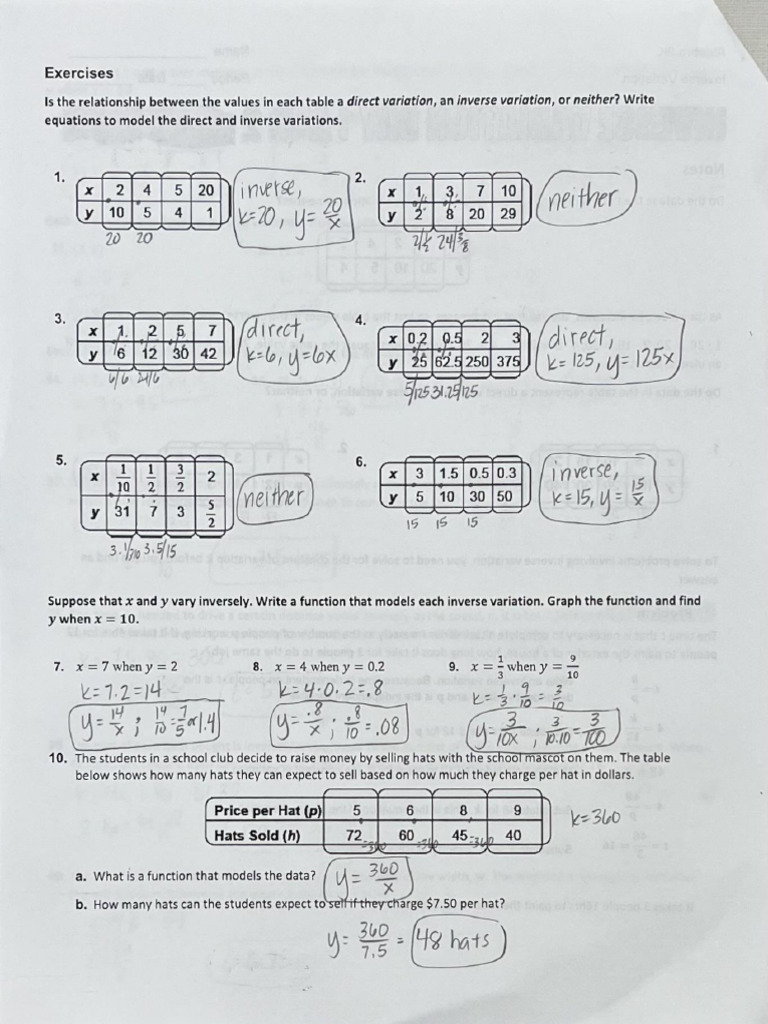 Exercises
Is the relationship between the values in each table a direct variation, an inverse variation, or neither? Write
equations to model the direct and inverse variations.
1.
x 2 4 5 20
y 10 5 4 1
20 20
inverse,
k=20, y= 20/x
2.
x 1 3 7 10
y 2 8 20 29
neither
3.
x 1 2 5 7
y 6 12 30 42
6/6 24/6
direct,
k=6, y=6x
4.
x 0.2 0.5 2 3
y 25 62.5 250 375
5/125 31.25/125
direct,
k=125, y=125x
5.
x 1/10 1/2 3/2 2
y 31 7 3 5/2
neither
6.
x 3 1.5 0.5 0.3
y 5 10 30 50
15 15 15
inverse,
k=15, y= 15/x
Suppose that x and y vary inversely. Write a function that models each inverse variation. Graph the function and find
y when x = 10.
7. x = 7 when y = 2
k=7.2=14
y= 14/x ; 14/10 = 7/5 or 1.4
8. x = 4 when y = 0.2
k=4·0.2=.8
y= .8/x ; .8/10 = .08
9. x = 1/3 when y = 9/10
k= 1/3 · 9/10 = 3/10
y= 3/10x ; 3/10·10 = 3/100
10. The students in a school club decide to raise money by selling hats with the school mascot on them. The table
below shows how many hats they can expect to sell based on how much they charge per hat in dollars.
Price per Hat (p) 5 6 8 9
Hats Sold (h) 72 60 45 40
=360 =360 =360
k=360
a. What is a function that models the data?
y= 360/x
b. How many hats can the students expect to sell if they charge $7.50 per hat?
y= 360/7.5 = 48 hats